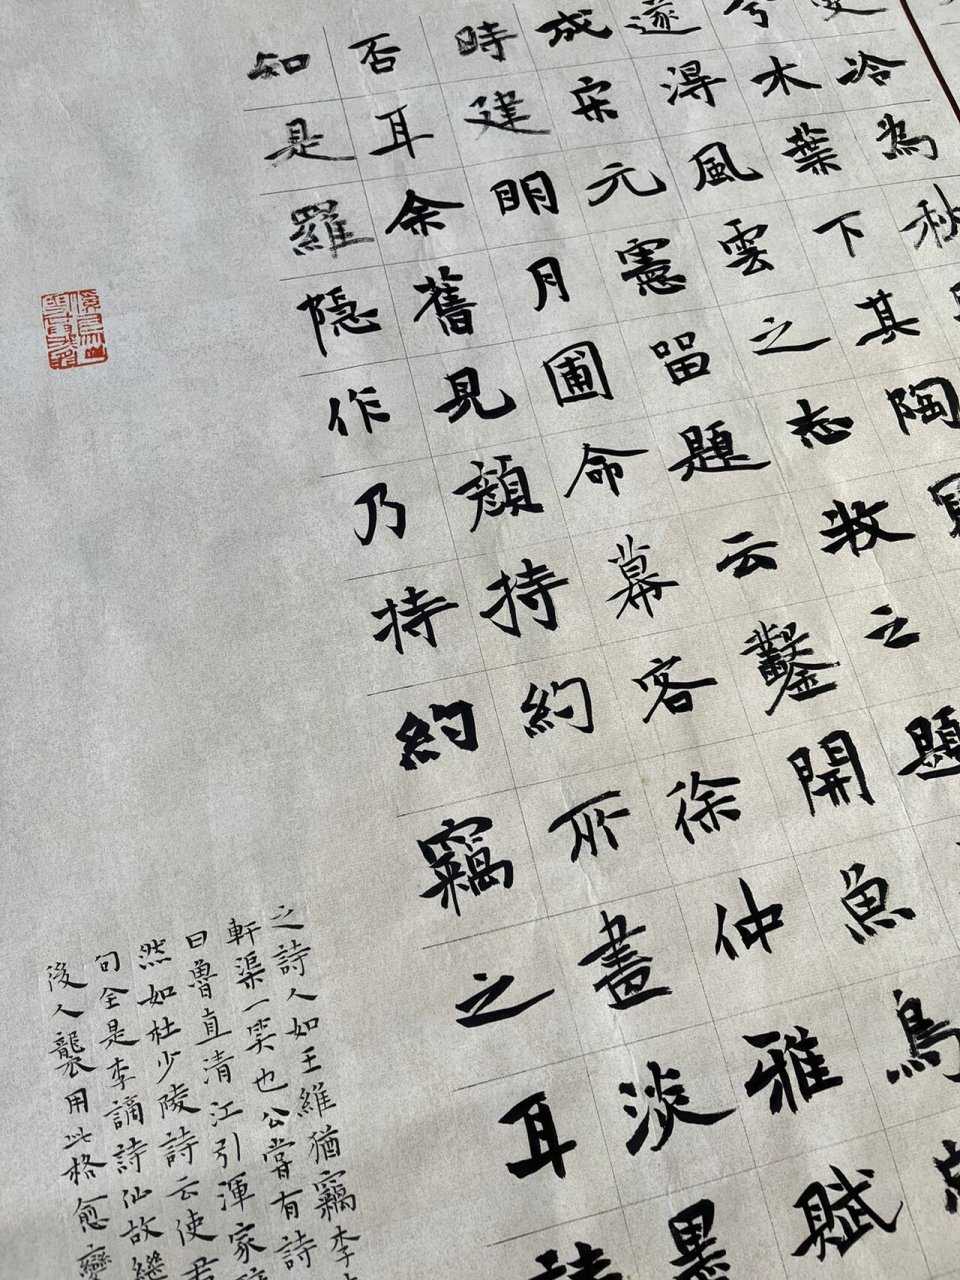 冷為秋
兮木葉下其陶
遂淂風雲之志收之題
成宋元憲留題云鑿開魚鳥
時建明月圃命幕客徐仲雅賦
否耳余舊見顏持約所畫淡墨
知是羅隱作乃持約竊之耳詩
之詩人如王維猶竊李
軒渠一笑也公嘗有詩
曰魯直清江引渾家
然如杜少陵詩云使君
句全是李謫詩仙故繼
後人襲用此格愈變